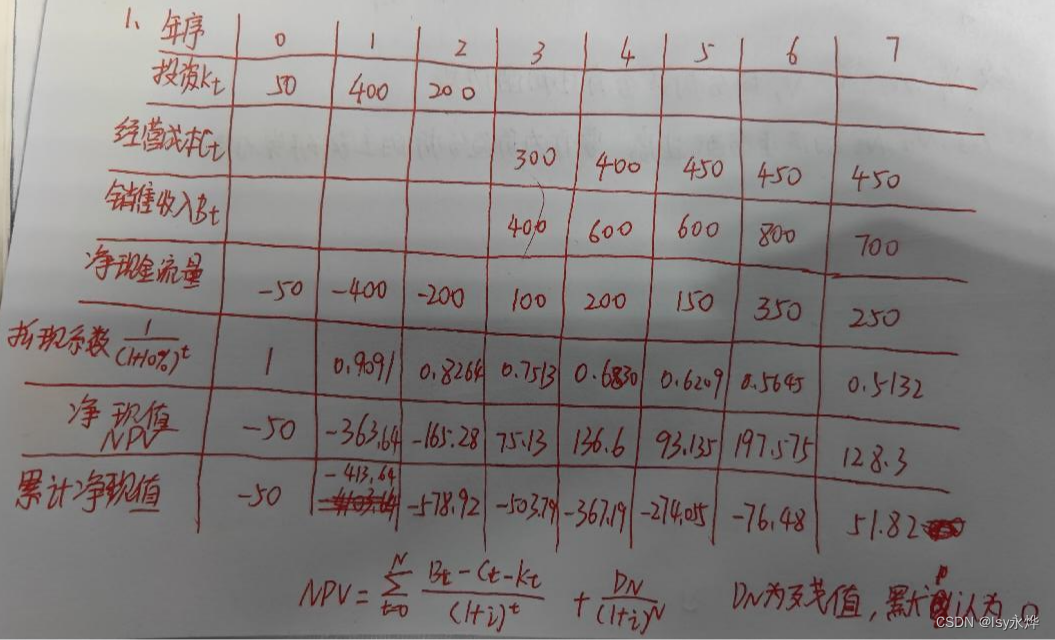 1、年序 0 1 2 3 4 5 6 7
投资Kt 50 400 200
经营成本Ct 300 400 450 450 450
销售收入Bt 400 600 600 800 700
净现金流量 -50 -400 -200 100 200 150 350 250
折现系数 1/(1+10%)^t 1 0.9091 0.8264 0.7513 0.6830 0.6209 0.5645 0.5132
净现值NPV -50 -363.64 -165.28 75.13 136.6 93.135 197.575 128.3
累计净现值 -50 -413.64 -578.92 -503.79 -367.19 -274.055 -76.48 51.82
NPV = ∑_{t=0}^{N} (Bt-Ct-Kt)/(1+i)^t + D_N/(1+i)^N D_N为残值,默认为0
CSDN @lsy永烨